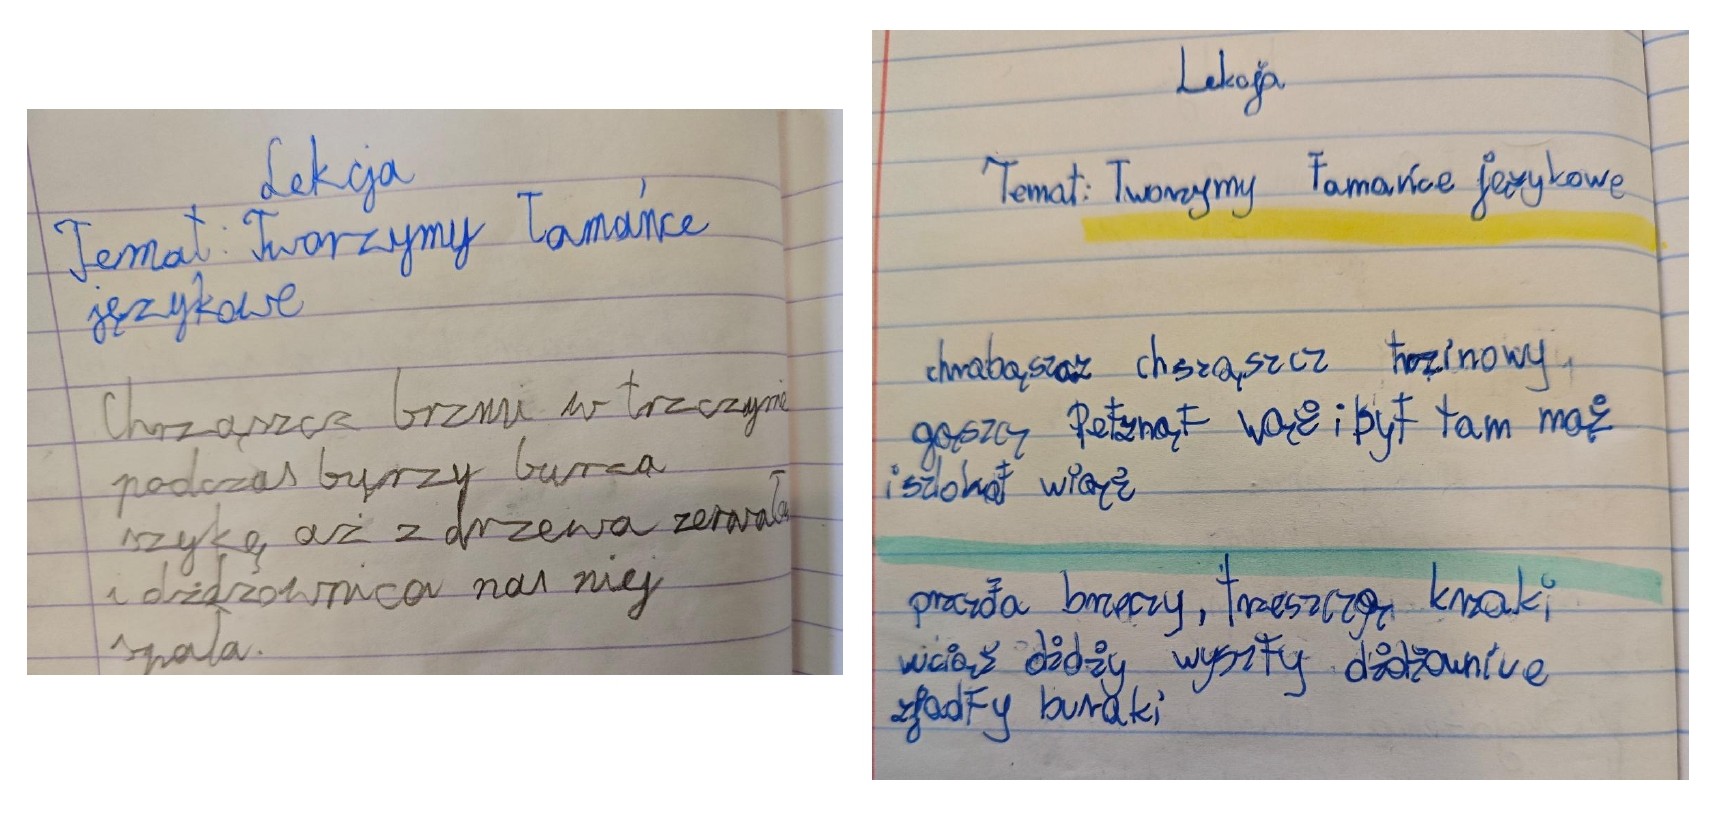 Lekcja
Temat: Tworzymy łamańce
językowe
Chrząszcz brzmi w trzczynie
podczas byrzy burza
szyką aż z drzewa zerwała
i dżdżownica nas niej
spała.
Lekcja
Temat: Tworzymy łamańce językowe
chrabąszcz chsząszcz trzinowy
gąszczy Pełznął wąż i był tam mąż
wiąż
brzęczy, trzeszczą krzaki
wciąż dżdży wyszły dżdżownice
zjadły buraki